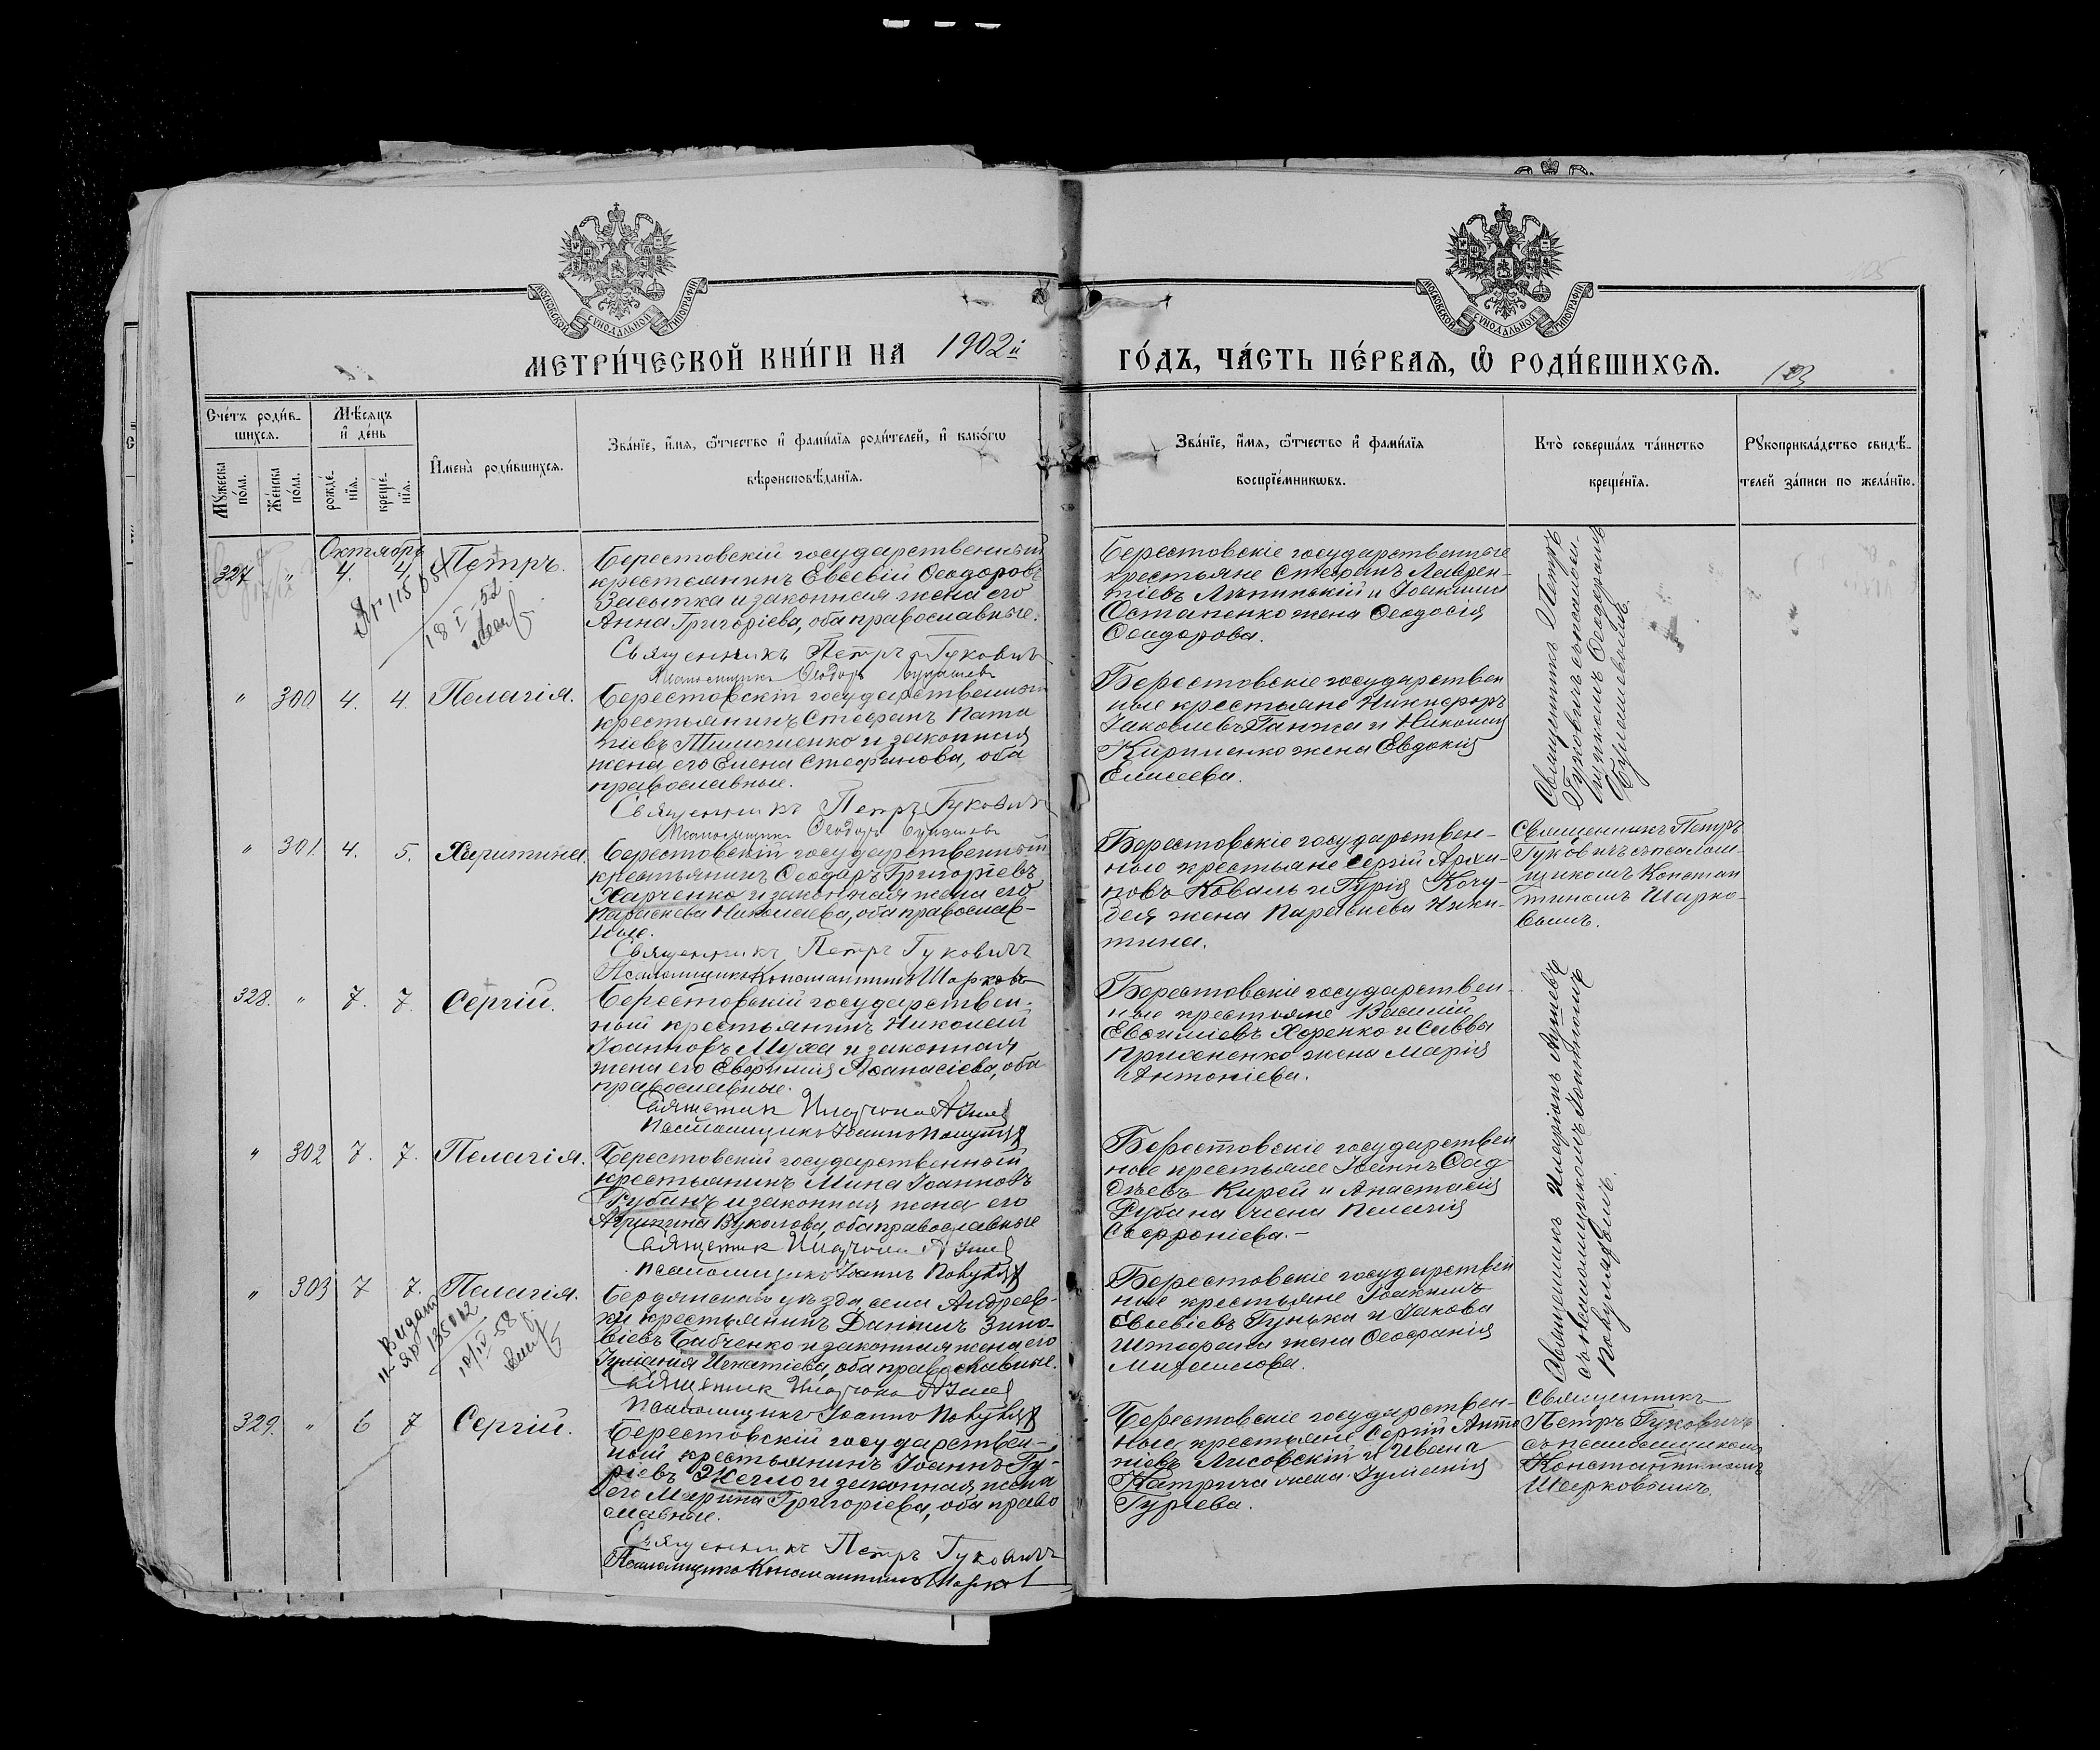 МОСКОВСКОЙ СУНОДАЛЬНОЙ ТИПОГРАФІИ
МОСКОВСКОЙ СУНОДАЛЬНОЙ ТИПОГРАФІИ
МЕТРИ́ЧЕСКОЙ КНИ́ГИ НА 1902й
ГО́ДЪ, ЧА́СТЬ ПЕ́РВАѦ, Ѡ҆ РОДИ́ВШИХСѦ.
123
Сче́тъ роди́в-
шихсѧ.
Мꙋ́жеска
по́ла.
Же́нска
по́ла.
Мѣ́сѧцъ
и҆ де́нь
рожде́-
нїѧ.
креще́-
нїѧ.
И҆мена̀ роди́вшихсѧ.
Зва́нїе, и҆́мѧ, ѻ҆́тчество и҆ фами́лїѧ роди́телей, и҆ како́гѡ
вѣроисповѣ́данїѧ.
Зва́нїе, и҆́мѧ, ѻ҆́тчество и҆ фами́лїѧ
воспрїе́мникѡвъ.
Кто̀ соверша́лъ та́инство
креще́нїѧ.
Рꙋкоприкла́дство свидѣ́-
телей за́писи по жела́нїю.
Октябрь
327 " 4. 4. Петръ.
18 I-52
Берестовскій государственный
крестьянинъ Евсевій Ѳеодоровъ
Засыпка и законная жена его
Анна Григоріева, оба православные.
Священникъ Петръ Гуковичъ
Псаломщикъ Ѳеодоръ
Берестовскіе государственные
крестьяне Стефанъ Лаврен-
тіевъ и Іоакима
Остапенко жена Ѳеодосія
Ѳеодорова.
Священникъ Петръ
Гуковичъ съ псалом-
щикомъ Ѳеодоромъ
" 300 4. 4. Пелагія.
Берестовскій государственный
крестьянинъ Стефанъ Пата
піевъ Тимошенко и законная
жена его Елена Стефанова, оба
православные.
Священникъ Петръ Гуковичъ
Псаломщикъ Ѳеодоръ
Берестовскіе государствен
ные крестьяне Никифоръ
Іаковлевъ Ганжа и Николая
Кириленко жена Евдокія
Елисеева.
" 301. 4. 5. Харитина.
Берестовскій государственный
крестьянинъ Ѳеодоръ Григоріевъ
Харченко и законная жена его
Параскева Николаева, оба православ-
ные.
Священникъ Петръ Гуковичъ
Псаломщикъ Константинъ Шарковъ
Берестовскіе государствен-
ные крестьяне Сергій Архи-
повъ Коваль и Гурія Кочу-
бея жена Параскева Ники-
тина.
Священникъ Петръ
Гуковичъ съ псалом-
щикомъ Констан
тиномъ Шарко-
вымъ.
328. " 7. 7. Сергій.
Берестовскій государствен-
ный крестьянинъ Николай
Іоанновъ Муха и законная
жена его Евфимія Аѳанасіева, оба
православные.
Священник
Псаломщикъ Іоаннъ
Берестовскіе государствен-
ные крестьяне Василій
Евфиміевъ Хоренко и Саввы
жена Марія
Антоніева.
" 302 7. 7. Пелагія.
Берестовскій государственный
крестьянинъ Мина Іоанновъ
Рубанъ и законная жена его
Агрипина Вуколова, оба православные
Священник
Псаломщикъ Іоаннъ
Берестовскіе государствен
ные крестьяне Іоаннъ Ѳад
дѣевъ Кирей и Анастасія
Рубана жена Пелагія
Софроніева.-
Священникъ Иларіонъ
съ псаломщикомъ Іоанномъ
" 303 7 7. Пелагія.
Выдан
135042
Бердянскаго уѣзда, села Андреев-
ки крестьянинъ Даніилъ Зино-
віевъ Бабченко и законная жена его
Іуліанія Игнатіева, оба православные.
Священник
Псаломщикъ Іоаннъ
Берестовскіе государствен
ные крестьяне Іоакимъ
Евсевіевъ Гунька и Іакова
Штефана жена Ѳеофанія
Михаилова.
329. " 6 7 Сергій.
Берестовскій государствен-
ный крестьянинъ Іоаннъ Гу-
ріевъ Жегло и законная жена
его Марина Григоріева, оба право
славные.
Священникъ Петръ Гуковичъ
Псаломщикъ Константинъ Шарков
Берестовскіе государствен-
ные крестьяне Сергій Анто
ніевъ Лисовскій и Ивана
Катрича жена Іуліанія
Гуріева.
Священникъ
Петръ Гуковичъ
съ псаломщикомъ
Константиномъ
Шарковымъ.